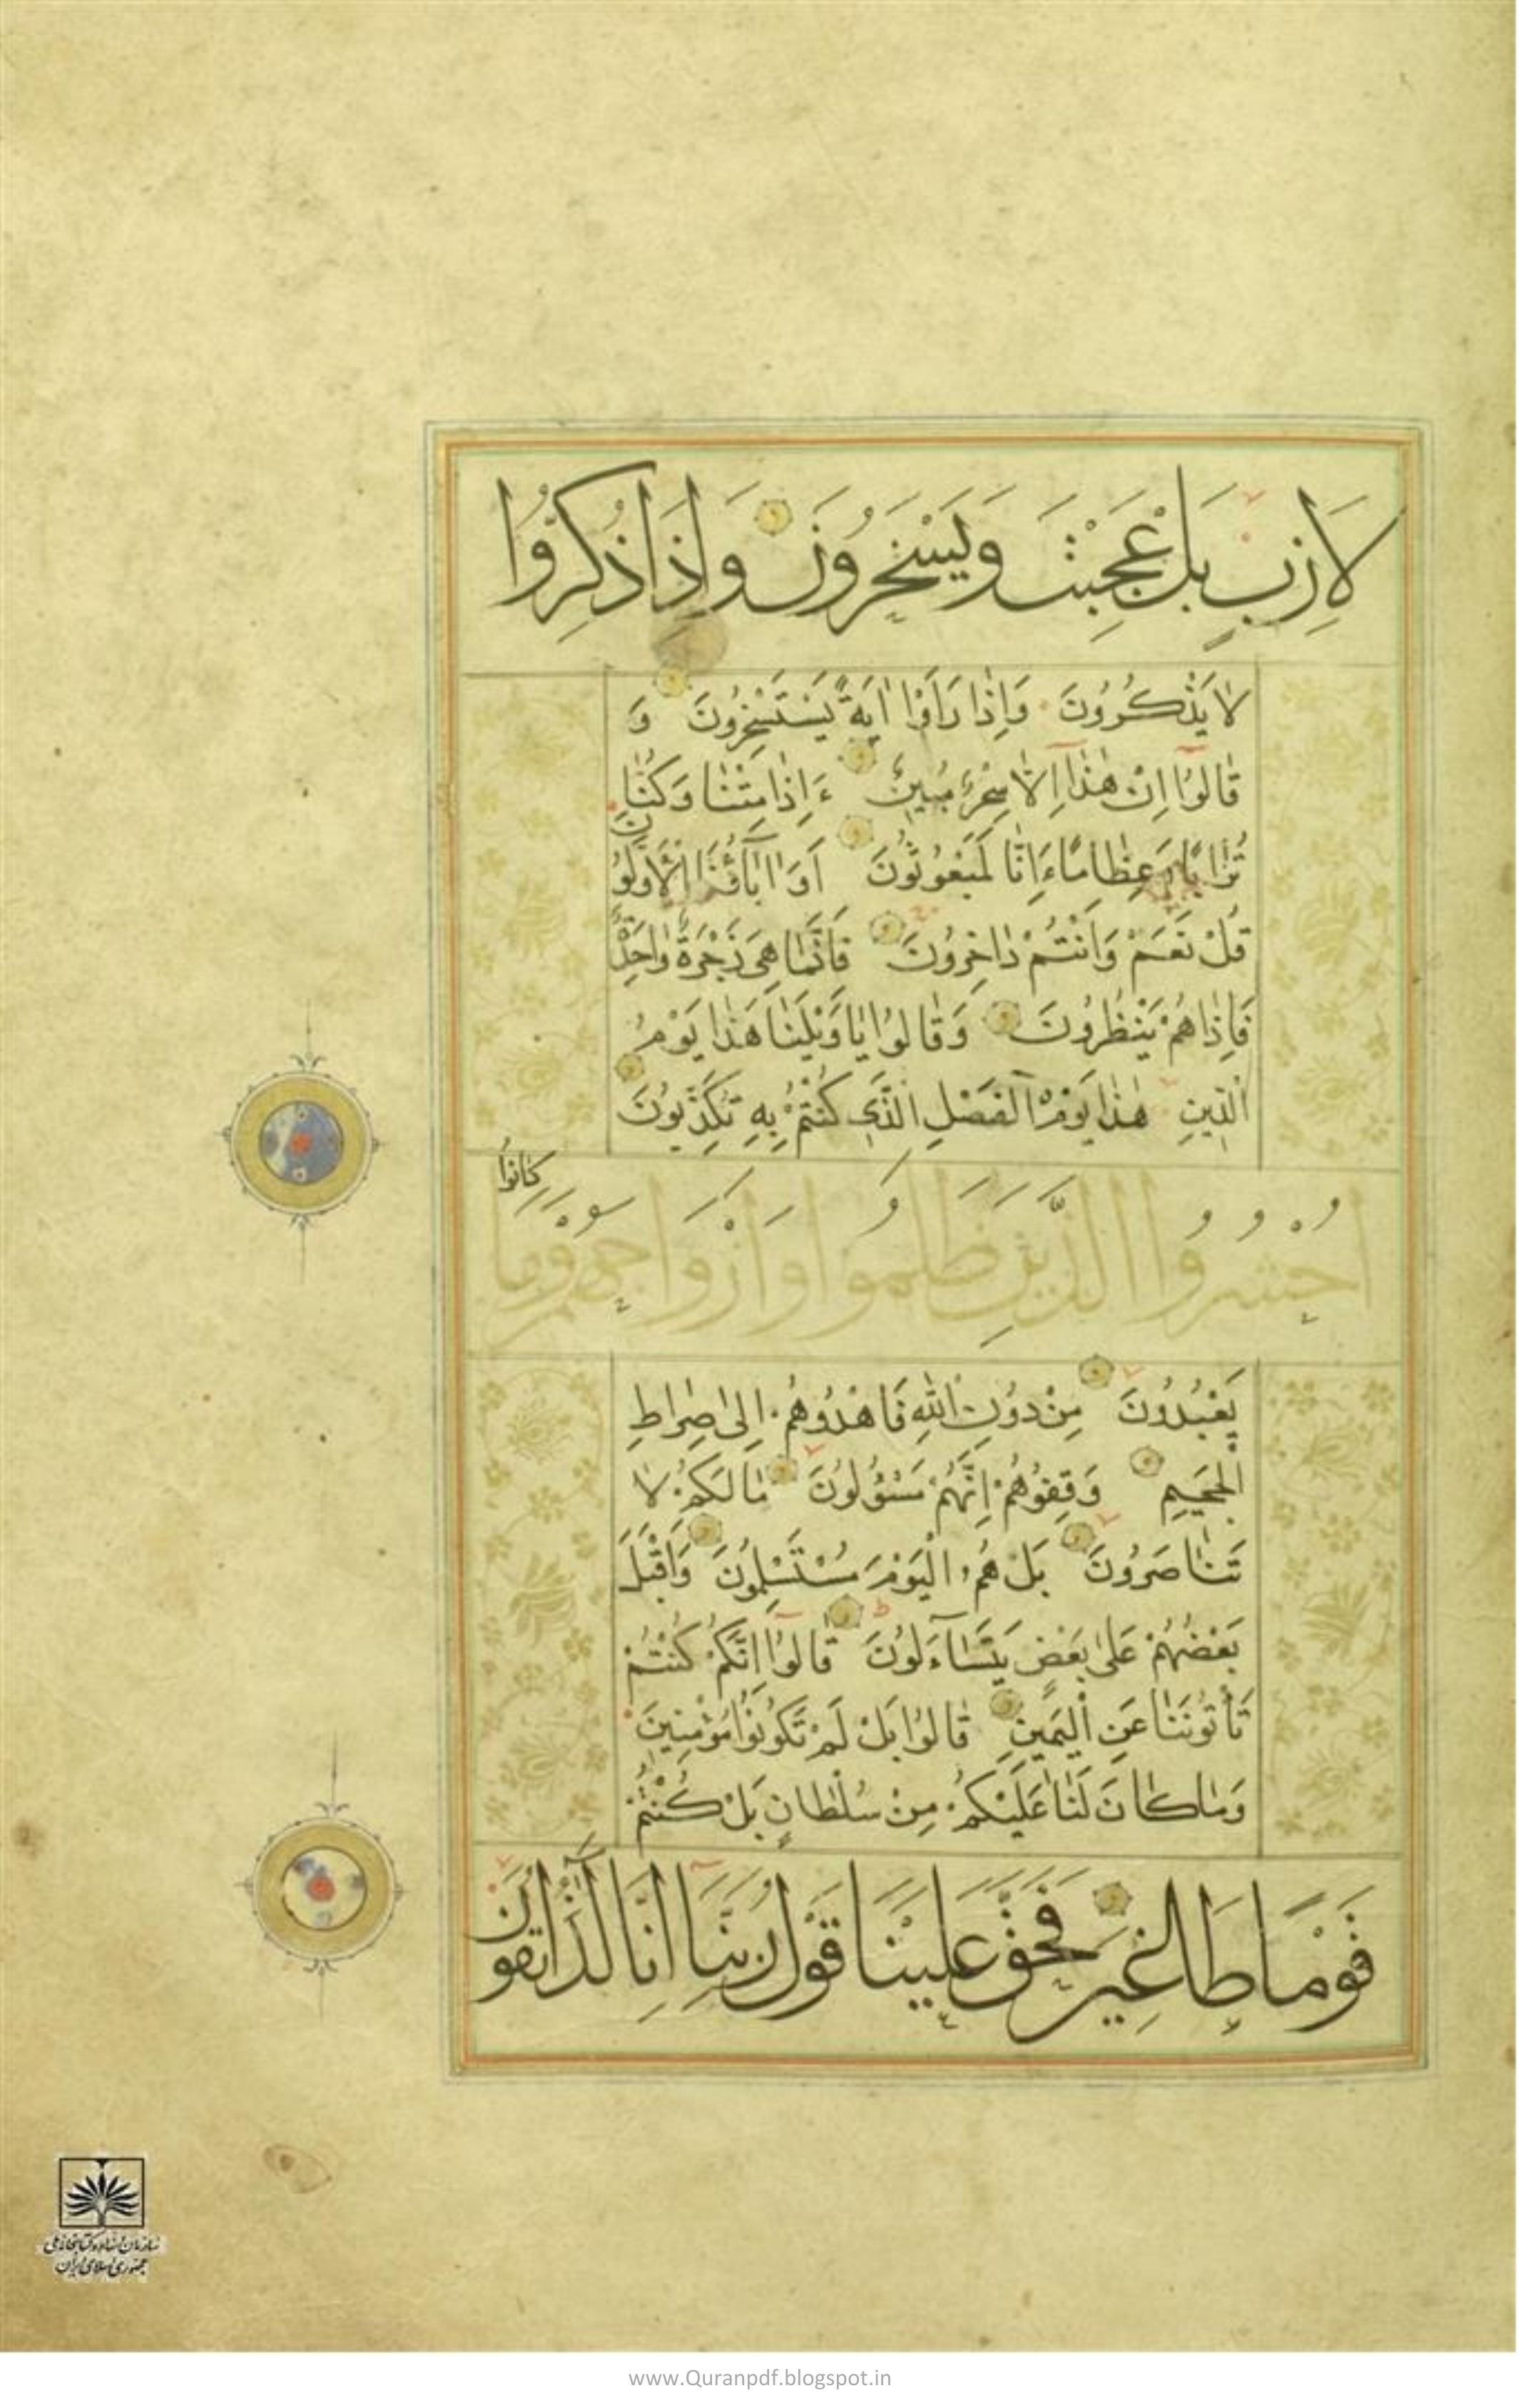 لَازِبٍ بَلْ عَجِبْتَ وَيَسْخَرُونَ وَإِذَا ذُكِّرُوا
لَا يَذْكُرُونَ وَاِذَا رَاَوْا اٰيَةً يَسْتَسْخِرُونَ وَ
قَالُوا اِنْ هٰذَا اِلَّا سِحْرٌ مُبِينٌ ءَاِذَا مِتْنَا وَكُنَّا
تُرَابًا وَعِظَامًا ءَاِنَّا لَمَبْعُوثُونَ اَوَ اٰبَاۤؤُنَا الْاَوَّلُونَ
قُلْ نَعَمْ وَاَنْتُمْ دَاخِرُونَ فَاِنَّمَا هِيَ زَجْرَةٌ وَاحِدَةٌ
فَاِذَا هُمْ يَنْظُرُونَ وَقَالُوا يَا وَيْلَنَا هٰذَا يَوْمُ
الدِّينِ هٰذَا يَوْمُ الْفَصْلِ الَّذِي كُنْتُمْ بِهِ تُكَذِّبُونَ
اُحْشُرُوا الَّذِينَ ظَلَمُوا وَاَزْوَاجَهُمْ وَمَا كَانُوا
يَعْبُدُونَ مِنْ دُونِ اللّٰهِ فَاهْدُوهُمْ اِلٰى صِرَاطِ
الْجَحِيمِ وَقِفُوهُمْ اِنَّهُمْ مَسْؤُلُونَ مَا لَكُمْ لَا
تَنَاصَرُونَ بَلْ هُمُ الْيَوْمَ مُسْتَسْلِمُونَ وَاَقْبَلَ
بَعْضُهُمْ عَلٰى بَعْضٍ يَتَسَاۤءَلُونَ قَالُوا اِنَّكُمْ كُنْتُمْ
تَأْتُونَنَا عَنِ الْيَمِينِ قَالُوا بَلْ لَمْ تَكُونُوا مُؤْمِنِينَ
وَمَا كَانَ لَنَا عَلَيْكُمْ مِنْ سُلْطَانٍ بَلْ كُنْتُمْ
قَوْمًا طَاغِينَ فَحَقَّ عَلَيْنَا قَوْلُ رَبِّنَا اِنَّا لَذَاۤئِقُونَ
سازمان اسناد و کتابخانه ملی
جمهوری اسلامی ایران
www.Quranpdf.blogspot.in